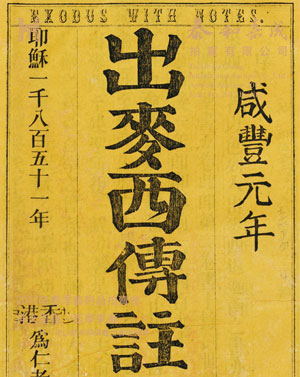 EXODUS WITH NOTES.
咸豐元年
出麥西傳註
耶穌一千八百五十一年
香港
為仁者